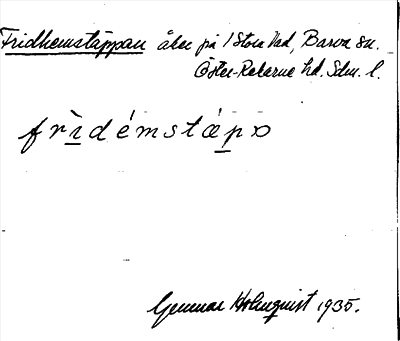 Fridhemstäppan åker på 1 Stora Vad, Barva sn.
Öster-Rekarne hd. Sdm. l.
frìdémstæpɒ
Gunnar Holmquist 1935.